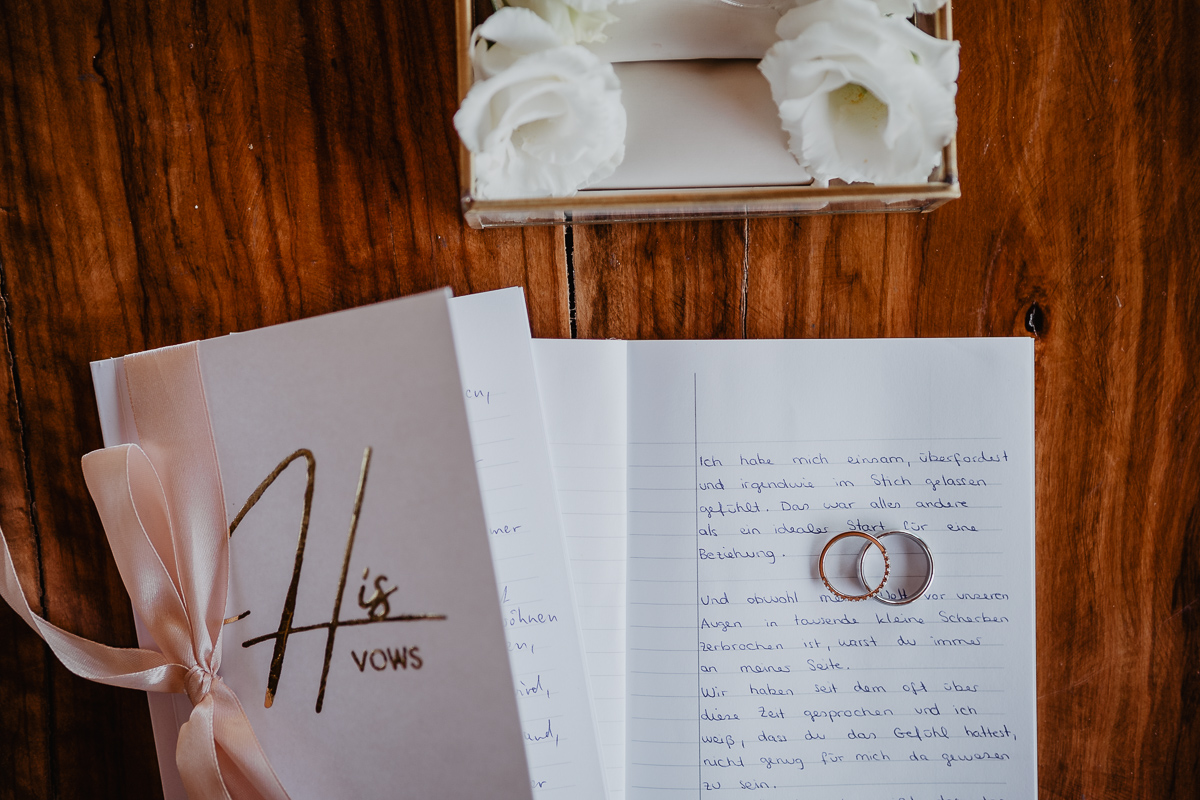 His
VOWS
en,
mer
öhnen
en,
ird,
und,
er
Ich habe mich einsam, überfordert
und irgendwie im Stich gelassen
gefühlt. Das war alles andere
als ein idealer Start für eine
Beziehung.
Und obwohl me Welt vor unseren
Augen in tausende kleine Scherben
zerbrochen ist, warst du immer
an meiner Seite.
Wir haben seit dem oft über
diese Zeit gesprochen und ich
weiß, dass du das Gefühl hattest,
nicht genug für mich da gewesen
zu sein.